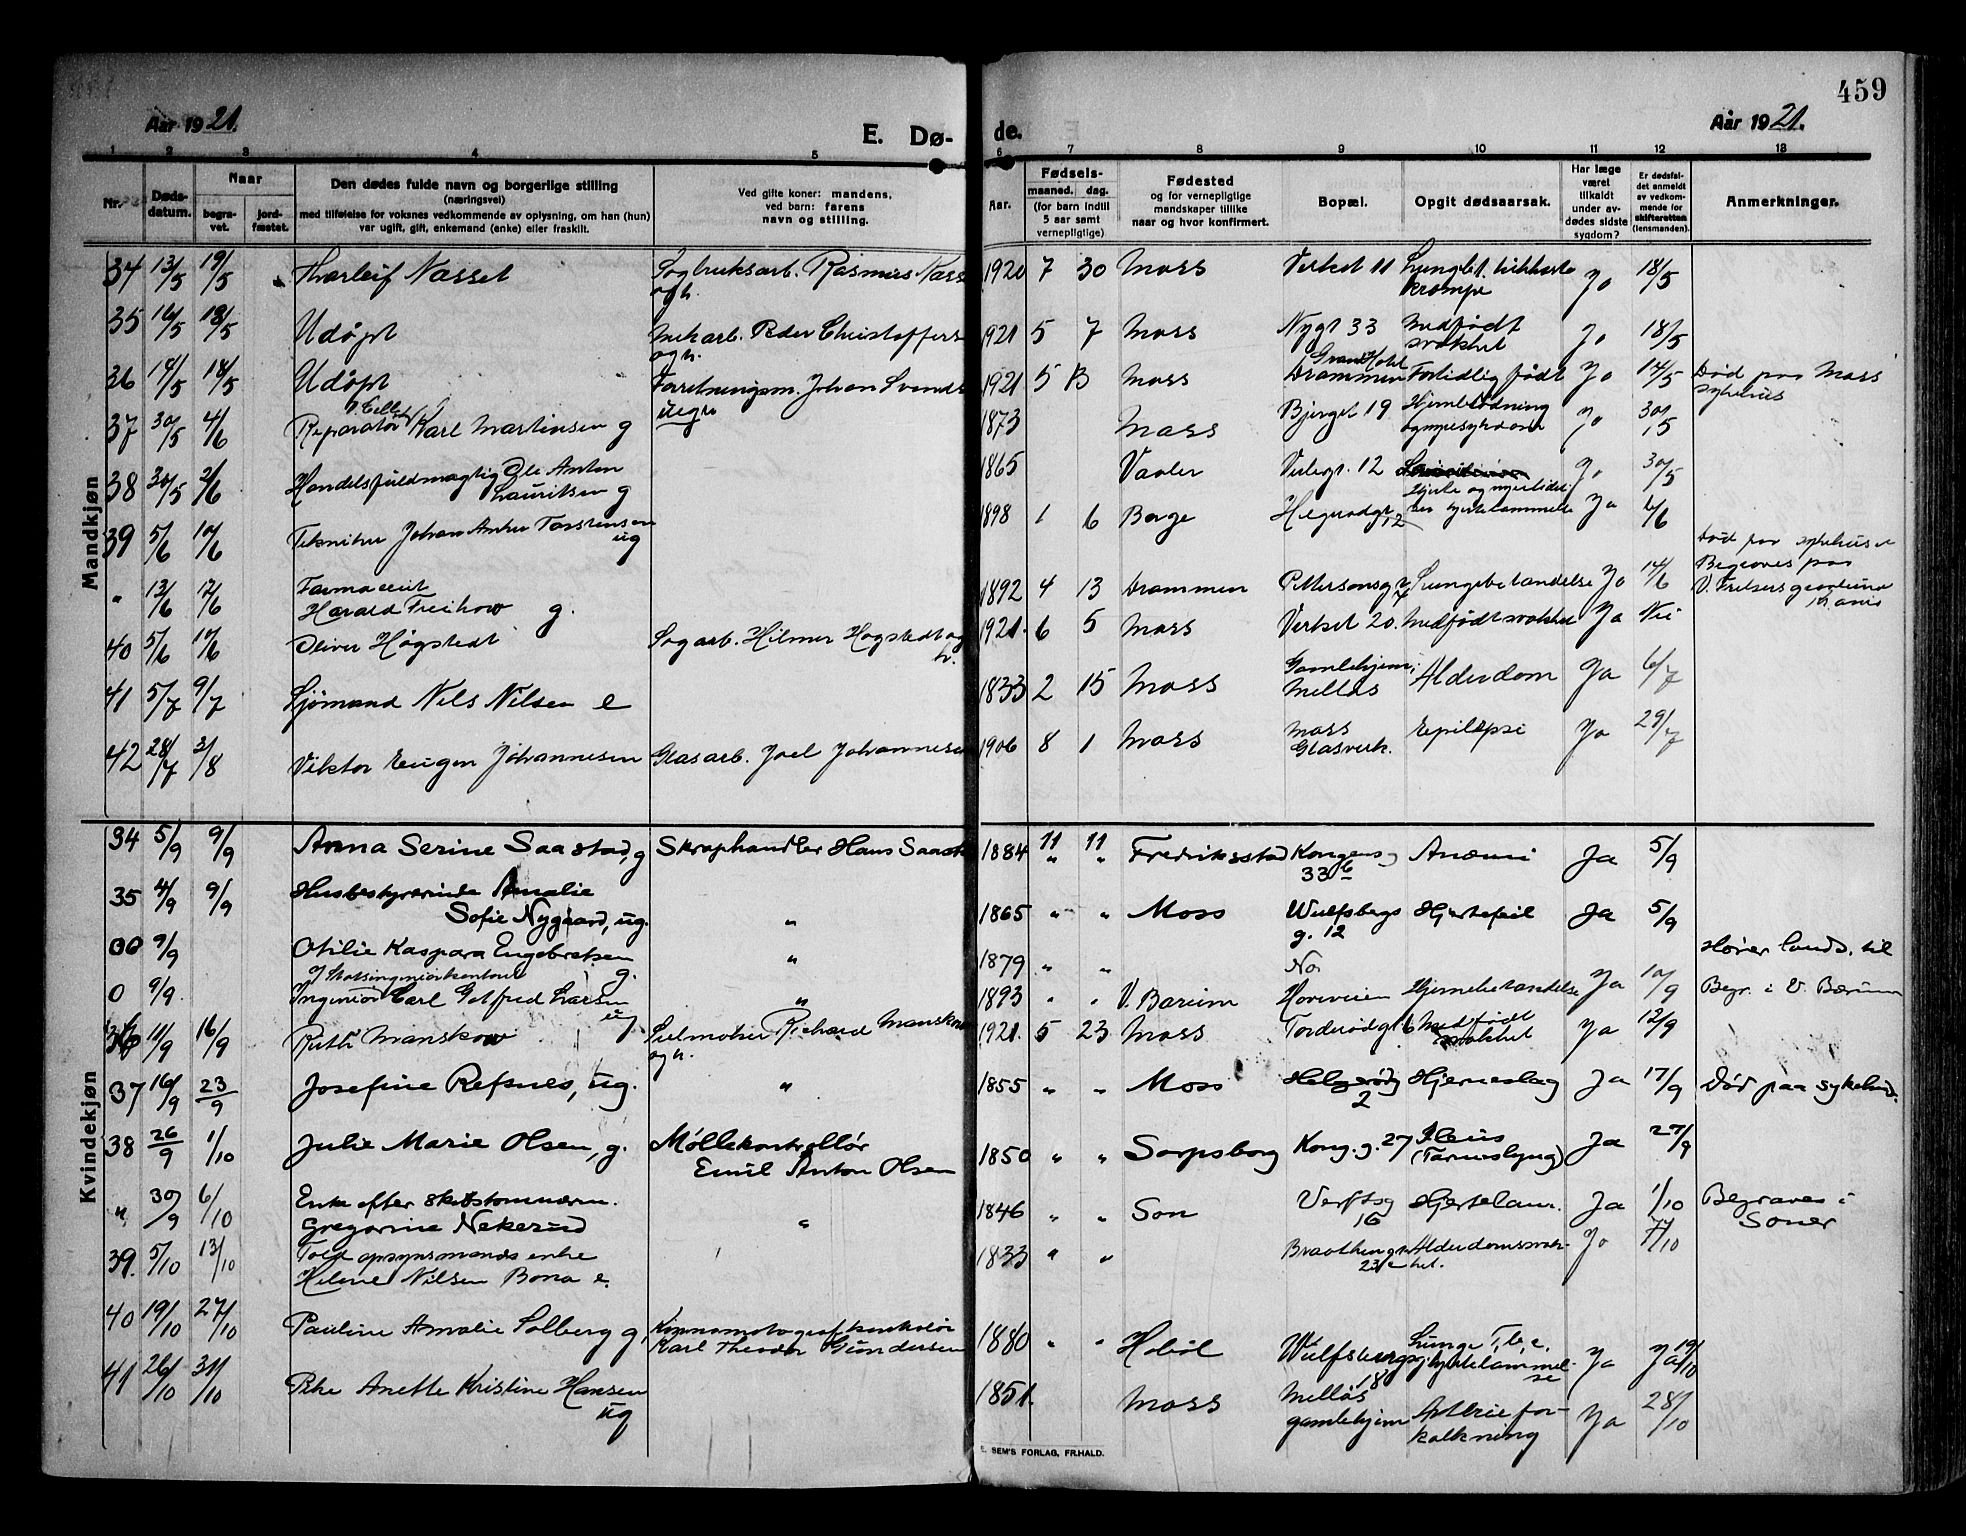 459
Aar 1921.
E. Dø-
de.
Aar 1921.
1 2 3 4 5 6 7 8 9 10 11 12 13
Nr.
Døds-
datum.
Naar
begra-
vet.
jord-
fæstet.
Den dødes fulde navn og borgerlige stilling
(næringsvei)
med tilføielse for voksnes vedkommende av oplysning, om han (hun)
var ugift, gift, enkemand (enke) eller fraskilt.
Ved gifte koner: mandens,
ved barn: farens
navn og stilling.
Aar.
Fødsels-
maaned. dag.
(for barn indtil
5 aar samt
vernepligtige)
Fødested
og for vernepligtige
mandskaper tillike
naar og hvor konfirmert.
Bopæl.
Opgit dødsaarsak.
Har læge
været
tilkaldt
under av-
dødes sidste
sygdom?
Er dødsfal-
det anmeldt
av vedkom-
mende for
skifteretten
(lensmanden).
Anmerkninger.
Mandkjøn
34 13/5 19/5 Thorleif Næsset Sagbruksarb. Rasmus Næss 1920 7 30 Moss Verket 11 Ja 18/5
ogh. krampe
35 18/5 Udøpt Mekarb. Peder Christoffers 1921 5 7 Moss Nygt 33 Medfødt Jo 18/5
ogh. svakhet
36 14/5 18/5 Udøpt Forretningsm. Johan Svends 1921 5 13 Moss Grand Hotel Drammen For tidlig født Jo 14/5 Død paa Moss
ugu sykehus
37 30/5 4/6 Reparatør Karl Martinsen g 1873 Moss Bjerget 19 Hjerneblødning Jo 30/5
38 30/5 2/6 Handelsfuldmægtig Ole Anton 1865 Vaaler Verlegt. 12 Jo 30/5
Lauritsen g
39 5/6 10/6 Tekniker Johan Anker Torstensen 1898 1 6 Borge Ja 6/6
ug
" 13/6 17/6 Farmaceut 1892 4 13 Drammen Lungebetændelse Jo 14/6 Død paa sykehuset
Harald Freihow g. Begraves paa
V. Frelsers gravlund
40 5/6 10/6 Oliver Høgstedt Sagarb. Hilmer Høgstedt og 1921. 6 5 Moss Verket 20. Medfødt svakhet Ja Nei
h.
41 5/7 9/7 Sjømand Nils Nilsen e 1833 2 15 Moss Gamlehjem, Alderdom Ja 6/7
Melløs
42 28/7 3/8 Viktor Eugen Johannesen Glasarb. Joel Johannesen 1906 8 1 Moss Moss Epilepsi Ja 29/7
Glasverk.
Kvindekjøn
34 5/9 9/9 Anna Serine Saastad, g Skraphandler Hans Saast 1884 11 11 Fredriksstad Kongensg Anæmi Ja 5/9
33 b
35 4/9 9/9 Husbestyrerinde Amalie
Sofie Nygaard, ug. " 1865 " " Moss Wulfsbergs Hjertefeil Ja 5/9
g. 12
9/9 Otilie Kaspara Engebretsen " 1879 " " No
g. Hører lands. til
0 9/9. Ingeniør Carl Gotfred Larsen " 1893 " " V. Bærum Hoveveien Hjernebetændelse Ja 10/9 Begr. i V. Bærum
ug
36 11/9 16/9 Ruth Manskow Richard Manskow 1921. 5 23 Moss Medfødt ja 12/9
ogh. svakhet
37 16/9 23/9 Josefine Refsnes, ug. " 1855 " " Moss Helgerødg Hjerneslag Ja 17/9 Død paa sykehus.
2
38 26/9 1/10 Julie Marie Olsen, g. Møllekontrollør 1850 " " Sarpsborg Kong.g. 27 Ileus Ja 27/9
Emil Anton Olsen (Tarmslyng)
" 30/9 6/10 Enke efter
Gregorine Nekerud " 1846 " " Son Verftsg Hjertelam. Ja 1/10 Begraves i
16 Soner
39. 5/10 13/10 Told opsynsmands enke 1833 " " Alderdomssvak- Jo 7/10
Helene Nilsen Bona e. het.
40 19/10 27/10 Pauline Amalie Solberg g, Kinematografkontrolør 1880 " " Hobøl Wulfsbergsg Lunge Tb.c. Ja 19/10
Karl Theodor Gundersen 18 hjertelammel-
se
41 26/10 31/10 Anette Kristine Hansen 1851. Moss Melløs Arterie for- Ja 28/10
ug gamlehjem kalkning
E. SEM'S FORLAG, FR.HALD.